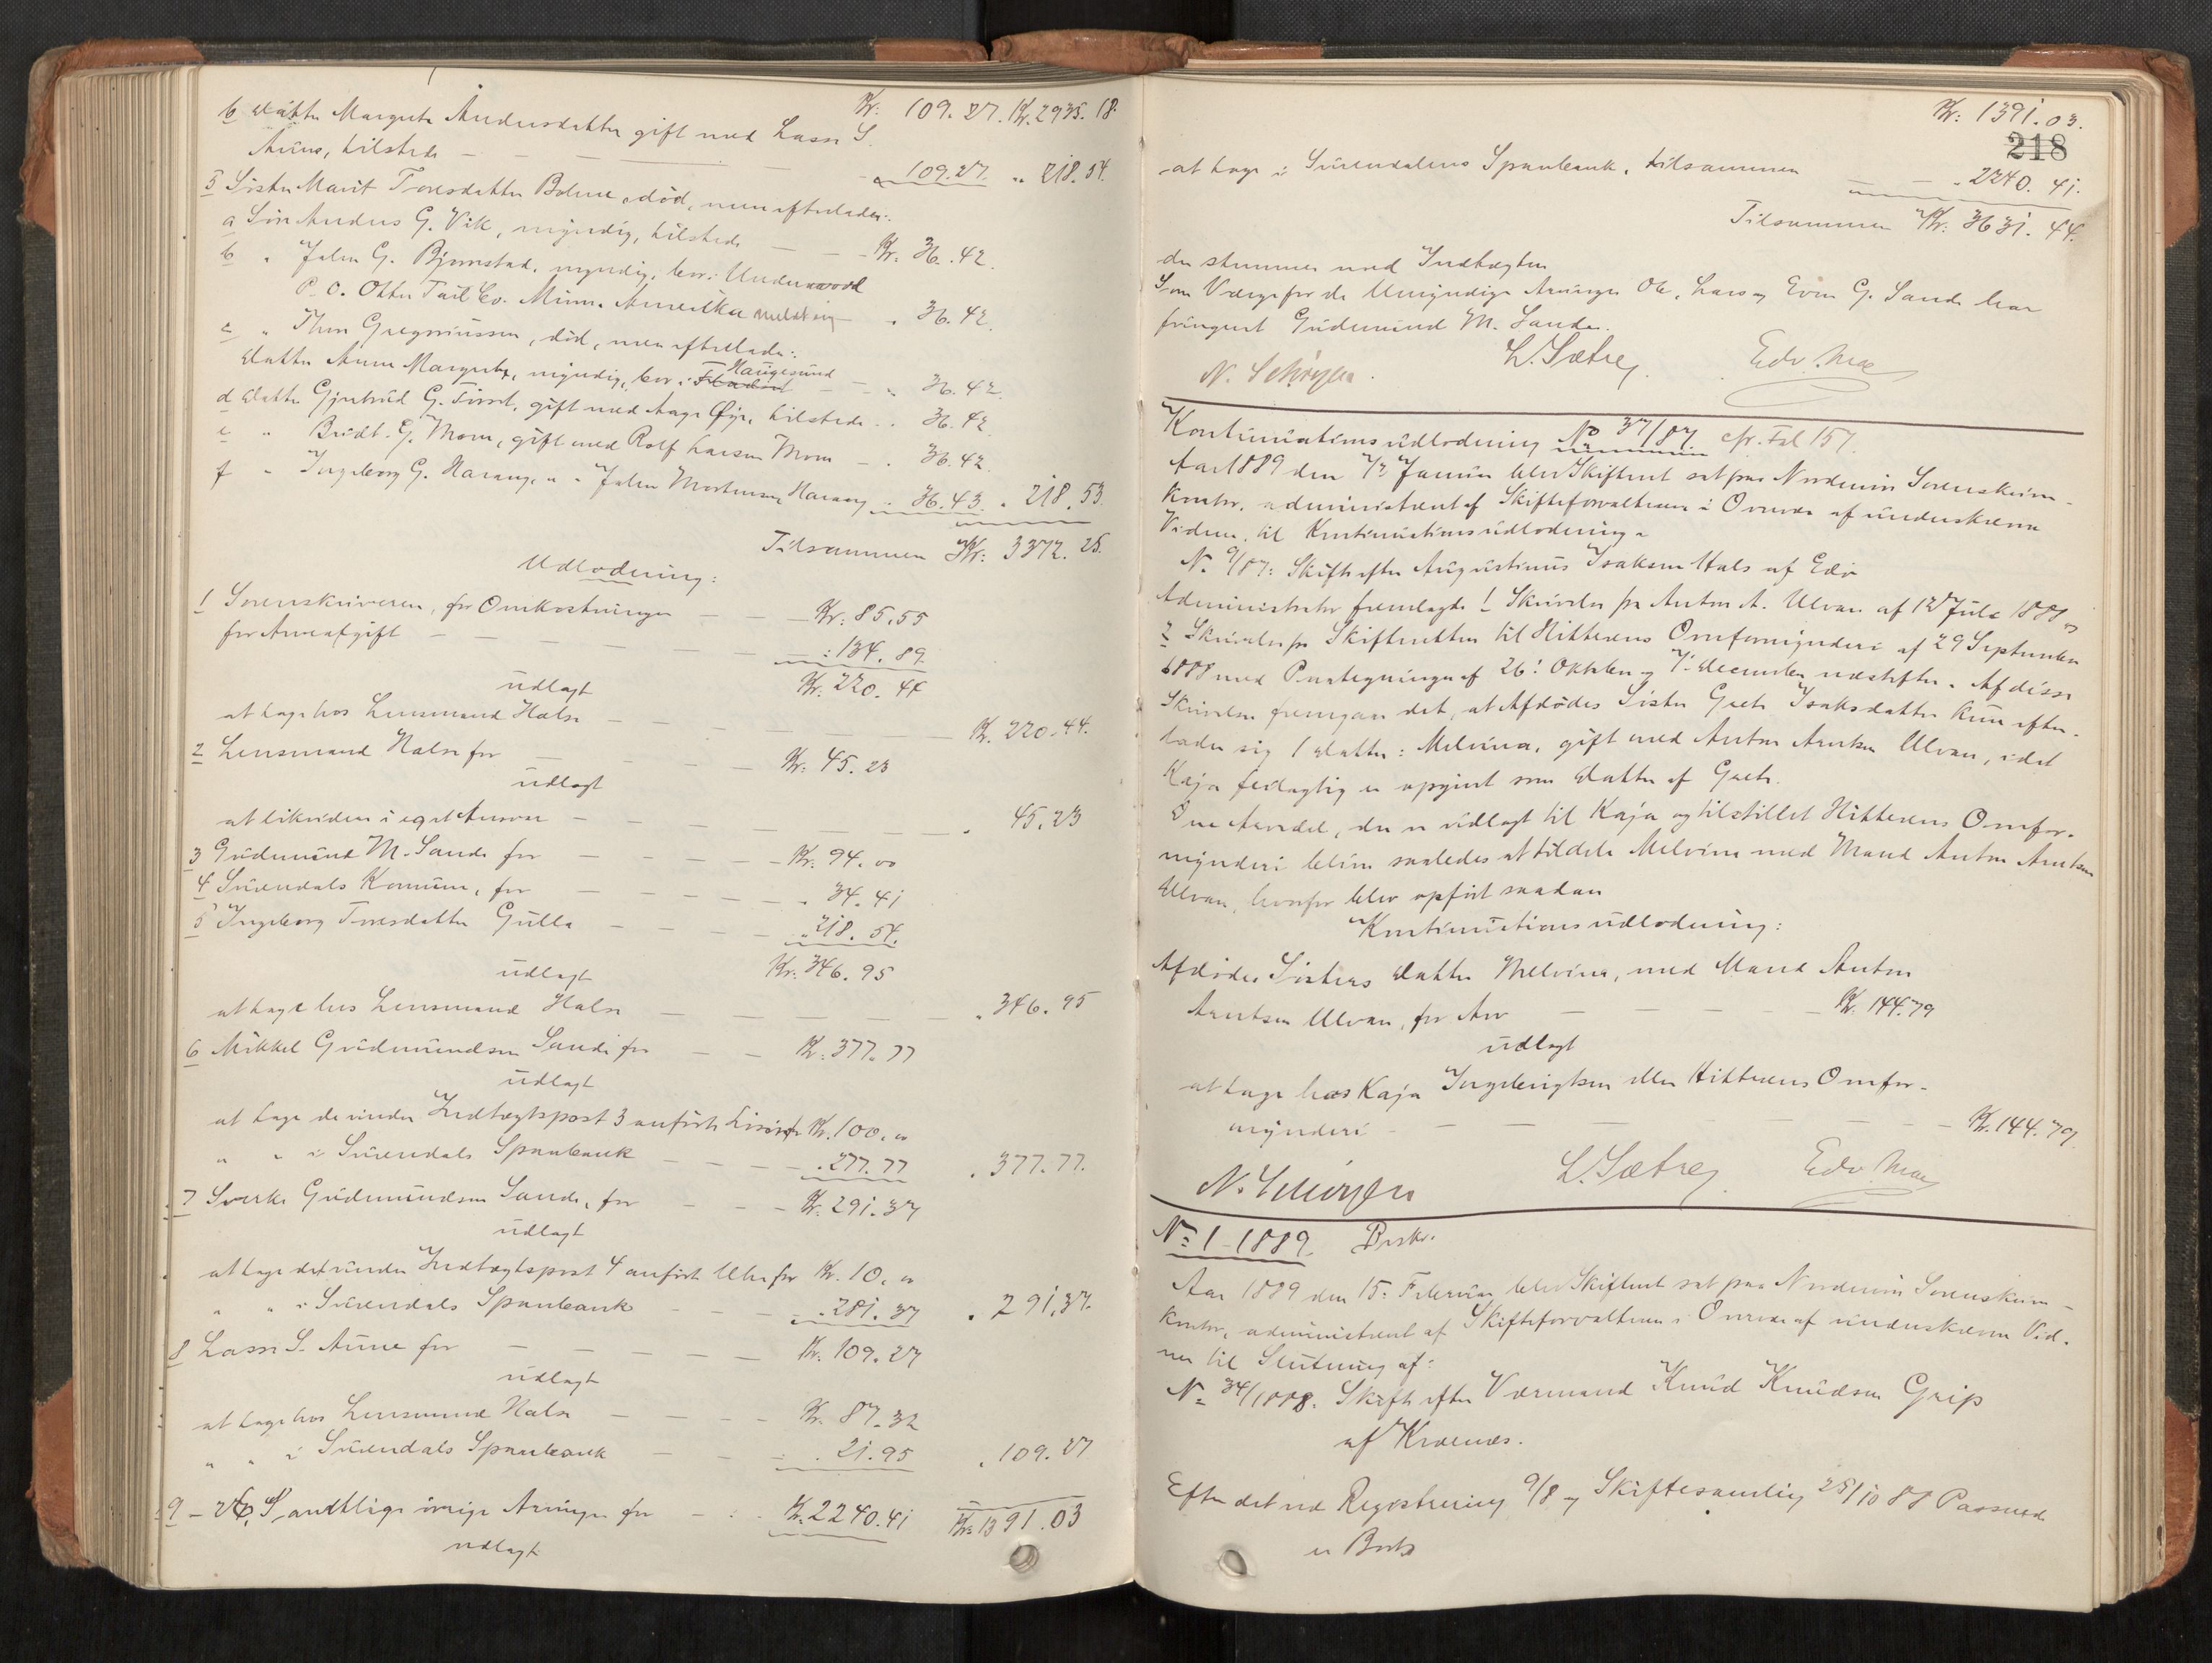 Kr. 109.27. Kr. 2935.18.
b Datter Margrete Andersdatter gift med Lasse S.
Aune, tilstede — — — " 109.27. " 218.54.
5 Søster Marit Toresdatter Bolme, død, men efterlader:
a Søn Anders G. Vik, myndig, tilstede — — Kr. 36.42.
b " John G. Bjørnstad, myndig, bor: Underwood
P.O. Otter Tail Co. Minn. Amerika " 36.42.
c " Thore Gregoriussen, død, men efterlader:
Datter Anne Margrete, myndig, bor i Haugesund — " 36.42.
d Datter Gjertrud G. , gift med Aage Øye, tilstede " 36.42.
e " Bridt. G. Moen, gift med Rolf Larsen Moen — " 36.42.
f " Ingeborg G. Harang, " " John Mortensen Harang " 36.43. " 218.53.
Tilsammen Kr. 3372.25.
Udlodning:
1 Sorenskriveren, for Omkostninger — — Kr. 85.55
for Arveafgift — — — — " 134.89
udlagt Kr. 220.44
at tage hos Lensmand Halse — — — Kr. 220.44.
2 Lensmand Halse for — — — Kr. 45.23
udlagt
at likvidere i eget Ansvar — — — — " 45.23
3 Gudmund M. Sande for — — — Kr. 94.00
4 Surendals Komune, for — — — " 34.41
5 Ingeborg Toresdatter Gulla — — — " 218.54.
udlagt Kr. 346.95
at tage hos Lensmand Halse — — — " 346.95
6 Mikkel Gudmundsen Sande for — — Kr. 377.77
udlagt
at tage de under Indtægtspost 3 anførte Kr. 100.00
" " i Surendals Sparebank — — — " 277.77 " 377.77.
7 Sverke Gudmundsen Sande, for — — — Kr. 291.37
udlagt
at tage det under Indtægtspost 4 anførte Uhr for Kr. 10.00
" " i Surendals Sparebank — — — " 281.37 " 291.37.
8 Lasse S. Aune for — — — — Kr. 109.27
udlagt
at tage hos Lensmand Halse — — — Kr. 87.32
" " i Surendals Sparebank — — " 21.95 " 109.27
9 - Samtlige øvrige Arvinger for — Kr. 2240.41 Kr. 1391.03
udlagt
Kr. 1391.03.
218
at tage i Surendalens Sparebank, tilsammen — — " 2240.41.
Tilsammen Kr. 3631.44.
der stemmer med Indtægten
Som Værge for de Umyndige Arvinger Ole, Lars og Even G. Sande har
fungeret Gudmund M. Sande.
N. Schiøgen. L. Sætre Edv. Moe
Kontinuationsudlodning No 37/87. cfr. Fol 157.
Aar 1889 den 7' Januar blev Skifteret sat paa Nordmøre Sorenskriver-
kontor, administreret af Skifteforvalteren i Overvær af underskrevne
Vidner, til Kontinuationsudlodning i
No 9/87: Skifte efter Augustinus Isaksen Hals af Edø
Administrator fremlagde 1 Skrivelse fra Anton A. Ulvan af 12' Juli 1888 og
2 Skrivelse fra Skifteretten til Hitterens Overformynderi af 29 September
1888 med Paategninger af 26' Oktober og 7' December næstefter. Af disse
Skrivelser fremgaar det, at Afdødes Søster Grete Isaksdatter kun efter-
lader sig 1 Datter: Melvina, gift med Anton Arntsen Ulvan, idet
Kaja feilagtig er opgivet som Datter af Grete.
Den Arvedel, der er udlagt til Kaja og tilstillet Hitterens Overfor-
mynderi bliver saaledes at tildele Melvina med Mand Anton Arntsen
Ulvan, hvorfor blev opført saadan
Kontinuationsudlodning:
Afdødes Søsters Datter Melvina, med Mand Anton
Arntsen Ulvan, for Arv — — — — Kr. 144.79
udlagt
at tage hos Kaja Ingebrigtsen eller Hitterens Overfor-
mynderi — — — — — Kr. 144.79
N. Schiøgen L. Sætre Edv. Moe
No 1 - 1889.
Aar 1889 den 15' Februar blev Skifteret sat paa Nordmøre Sorenskriver-
kontor, administreret af Skifteforvalteren i Overvær af underskrevne Vid-
ner til Slutning af:
No 34/1888. Skifte efter Værmand Knud Knudsen Grip
af Kvernes.
Efter det ved Registrering 9/8 og Skiftesamling 25/10 88 Passerede
er Boets